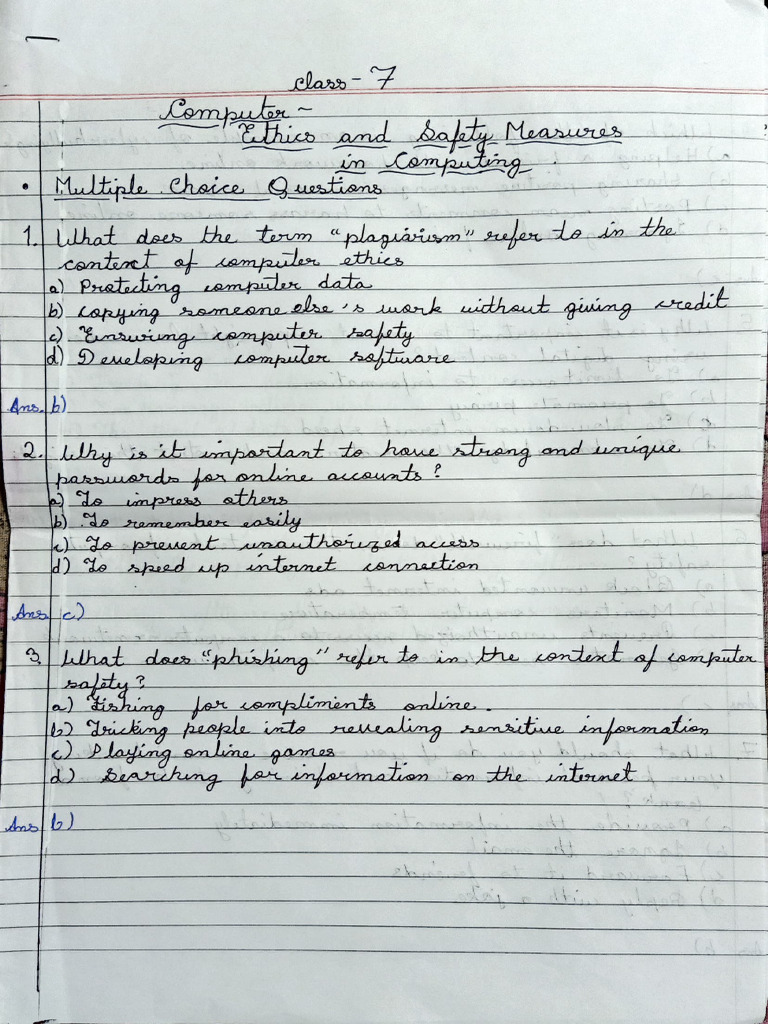 Class - 7
Computer ~
Ethics and Safety Measures
in Computing
• Multiple Choice Questions
1. What does the term "plagiarism" refer to in the
context of computer ethics
a) Protecting computer data
b) copying someone else's work without giving credit
c) Ensuring computer safety
d) Developing computer software
Ans. b)
2. Why is it important to have strong and unique
passwords for online accounts?
a) To impress others
b) To remember easily
c) To prevent unauthorized access
d) To speed up internet connection
Ans c)
3. What does "phishing" refer to in the context of computer
safety?
a) Fishing for compliments online.
b) Tricking people into revealing sensitive information
c) Playing online games
d) Searching for information on the internet
Ans b)